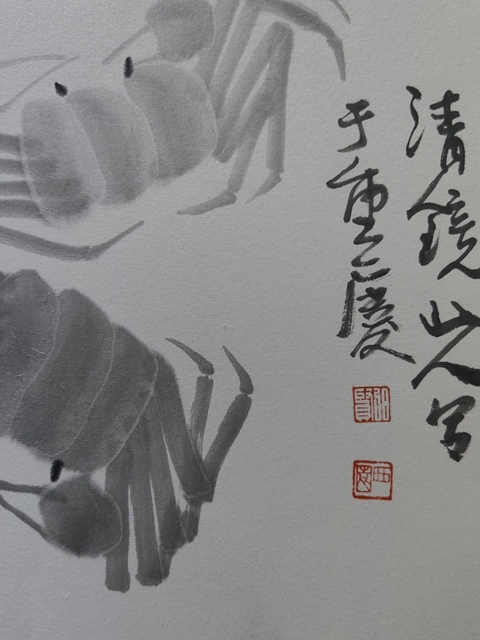 清镜山人写
于重庆